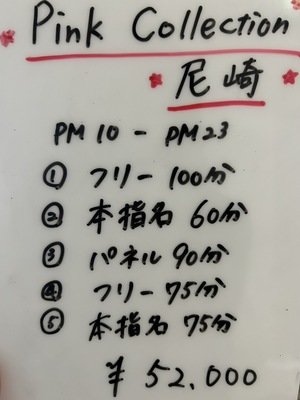 Pink Collection
尼崎
PM 10 - PM 23
① フリー 100分
② 本指名 60分
③ パネル 90分
④ フリー 75分
⑤ 本指名 75分
¥ 52.000